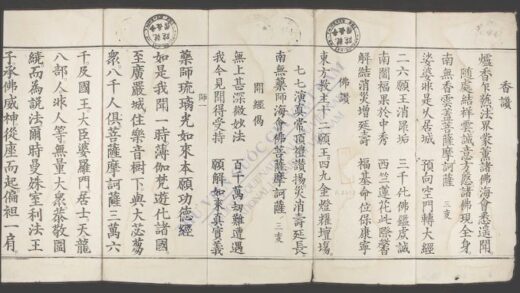 香讚
爐香乍爇法界蒙熏諸佛海會悉遙聞
随處結祥雲誠意方殷諸佛現全身
南無香雲蓋菩薩摩訶薩 三変
娑婆是火居城 預向空門轉大經
二六願王消罪垢 三千化佛鑑虔誠
南閻福果於中秀 西竺蓮花此際馨
解結消災增延壽 福基命位保康寧
佛讚
東方教主十二願王四九金燈羅壇場
七七演真常頂禮讚揚災消壽延長
南無藥師海會佛菩薩摩訶薩 三変
開經偈
無上甚深微妙法 百千萬劫難遭遇
我今見聞得受持 願解如來真實義
藥師琉璃光如來本願功德經
如是我聞一時薄伽梵遊化諸國
至廣嚴城住樂音樹下與大苾芻
衆八千人俱菩薩摩訶薩三萬六
千及國王大臣婆羅門居士天龍
八部人非人等無量大衆恭敬圍
繞而為說法爾時曼殊室利法王
子承佛威神從座而起偏袒一肩